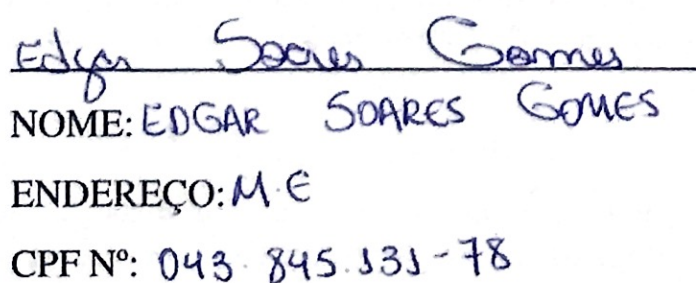 Edgar Soares Gomes
NOME: EDGAR SOARES GOMES
ENDEREÇO: M.E
CPF Nº: 043.845.131-78